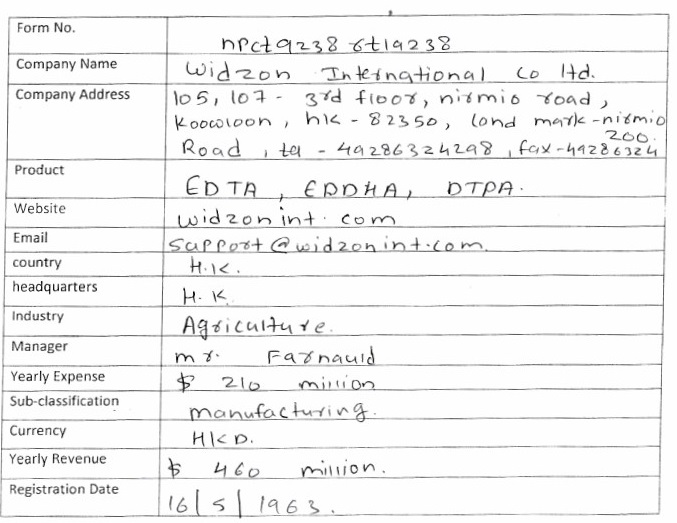 Form No. npct9238 6t19238
Company Name Widzon International Co ltd.
Company Address 105, 107 - 3rd floor, nirmio road,
Koowloon, hk - 82350, land mark - nirmio
Road, tel - 49286324298, fax - 49286324
200.
Product EDTA, EDDHA, DTPA.
Website widzonint.com
Email support@widzonint.com.
country H.K.
headquarters H.K.
Industry Agriculture.
Manager mr. Farnauld
Yearly Expense $ 210 million
Sub-classification manufacturing.
Currency HKD.
Yearly Revenue $ 460 million.
Registration Date 16/5/1963.